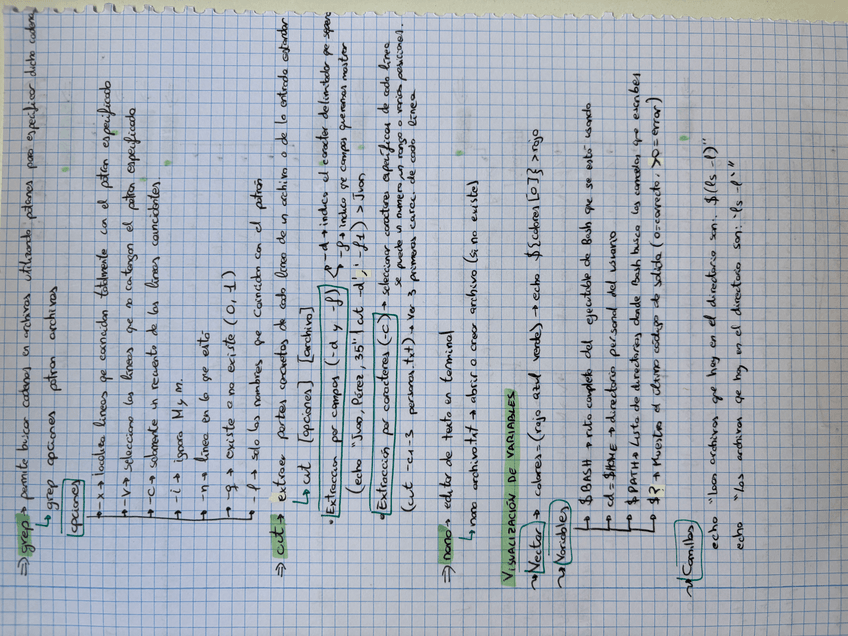 ⇒ grep → permite buscar cadenas en archivos utilizando patrones para especificar dicha cadena
↳ grep opciones patron archivos
opciones
→ -x → localiza lineas que coincidan totalmente con el patron especificado
→ -v → selecciona las lineas que no contengan el patron especificado
→ -c → solamente un recuento de las lineas coincidentes
→ -i → ignora M y m.
→ -n → linea en la que está
→ -q → existe o no existe (0, 1)
→ -l → solo los nombres que coincidan con el patrón
⇒ cut → extraer partes concretas de cada linea de un archivo o de la entrada estándar
↳ cut [opciones] [archivo]
• Extraccion por campos (-d y -f)
→ -d → indica el caracter delimitador que separa
→ -f → indica que campos queremos mostrar
(echo "Juan, Pérez, 35" | cut -d',' -f1) > Juan
• Extracción por caracteres (-c) → seleccionar caracteres específicos de cada línea
se puede un numero, un rango o varias posiciones.
(cut -c1-3 personas.txt) → ver 3 primeros carac de cada línea
⇒ nano → editor de texto en terminal
↳ nano archivo.txt → abrir o crear archivo (si no existe)
VISUALIZACIÓN DE VARIABLES
Vector → colores=(rojo azul verde) → echo ${colores[0]} > rojo
Variables
→ $BASH → ruta completa del ejecutable de Bash que se está usando
→ cd = $HOME → directorio personal del usuario
→ $PATH → Lista de directorios donde Bash busca los comandos que escribes
→ $? → Muestra el último código de salida (0=correcto, >0=error)
Comillas
echo "Los archivos que hay en el directorio son: $(ls -l)"
echo "Los archivos que hay en el directorio son: `ls -l`"